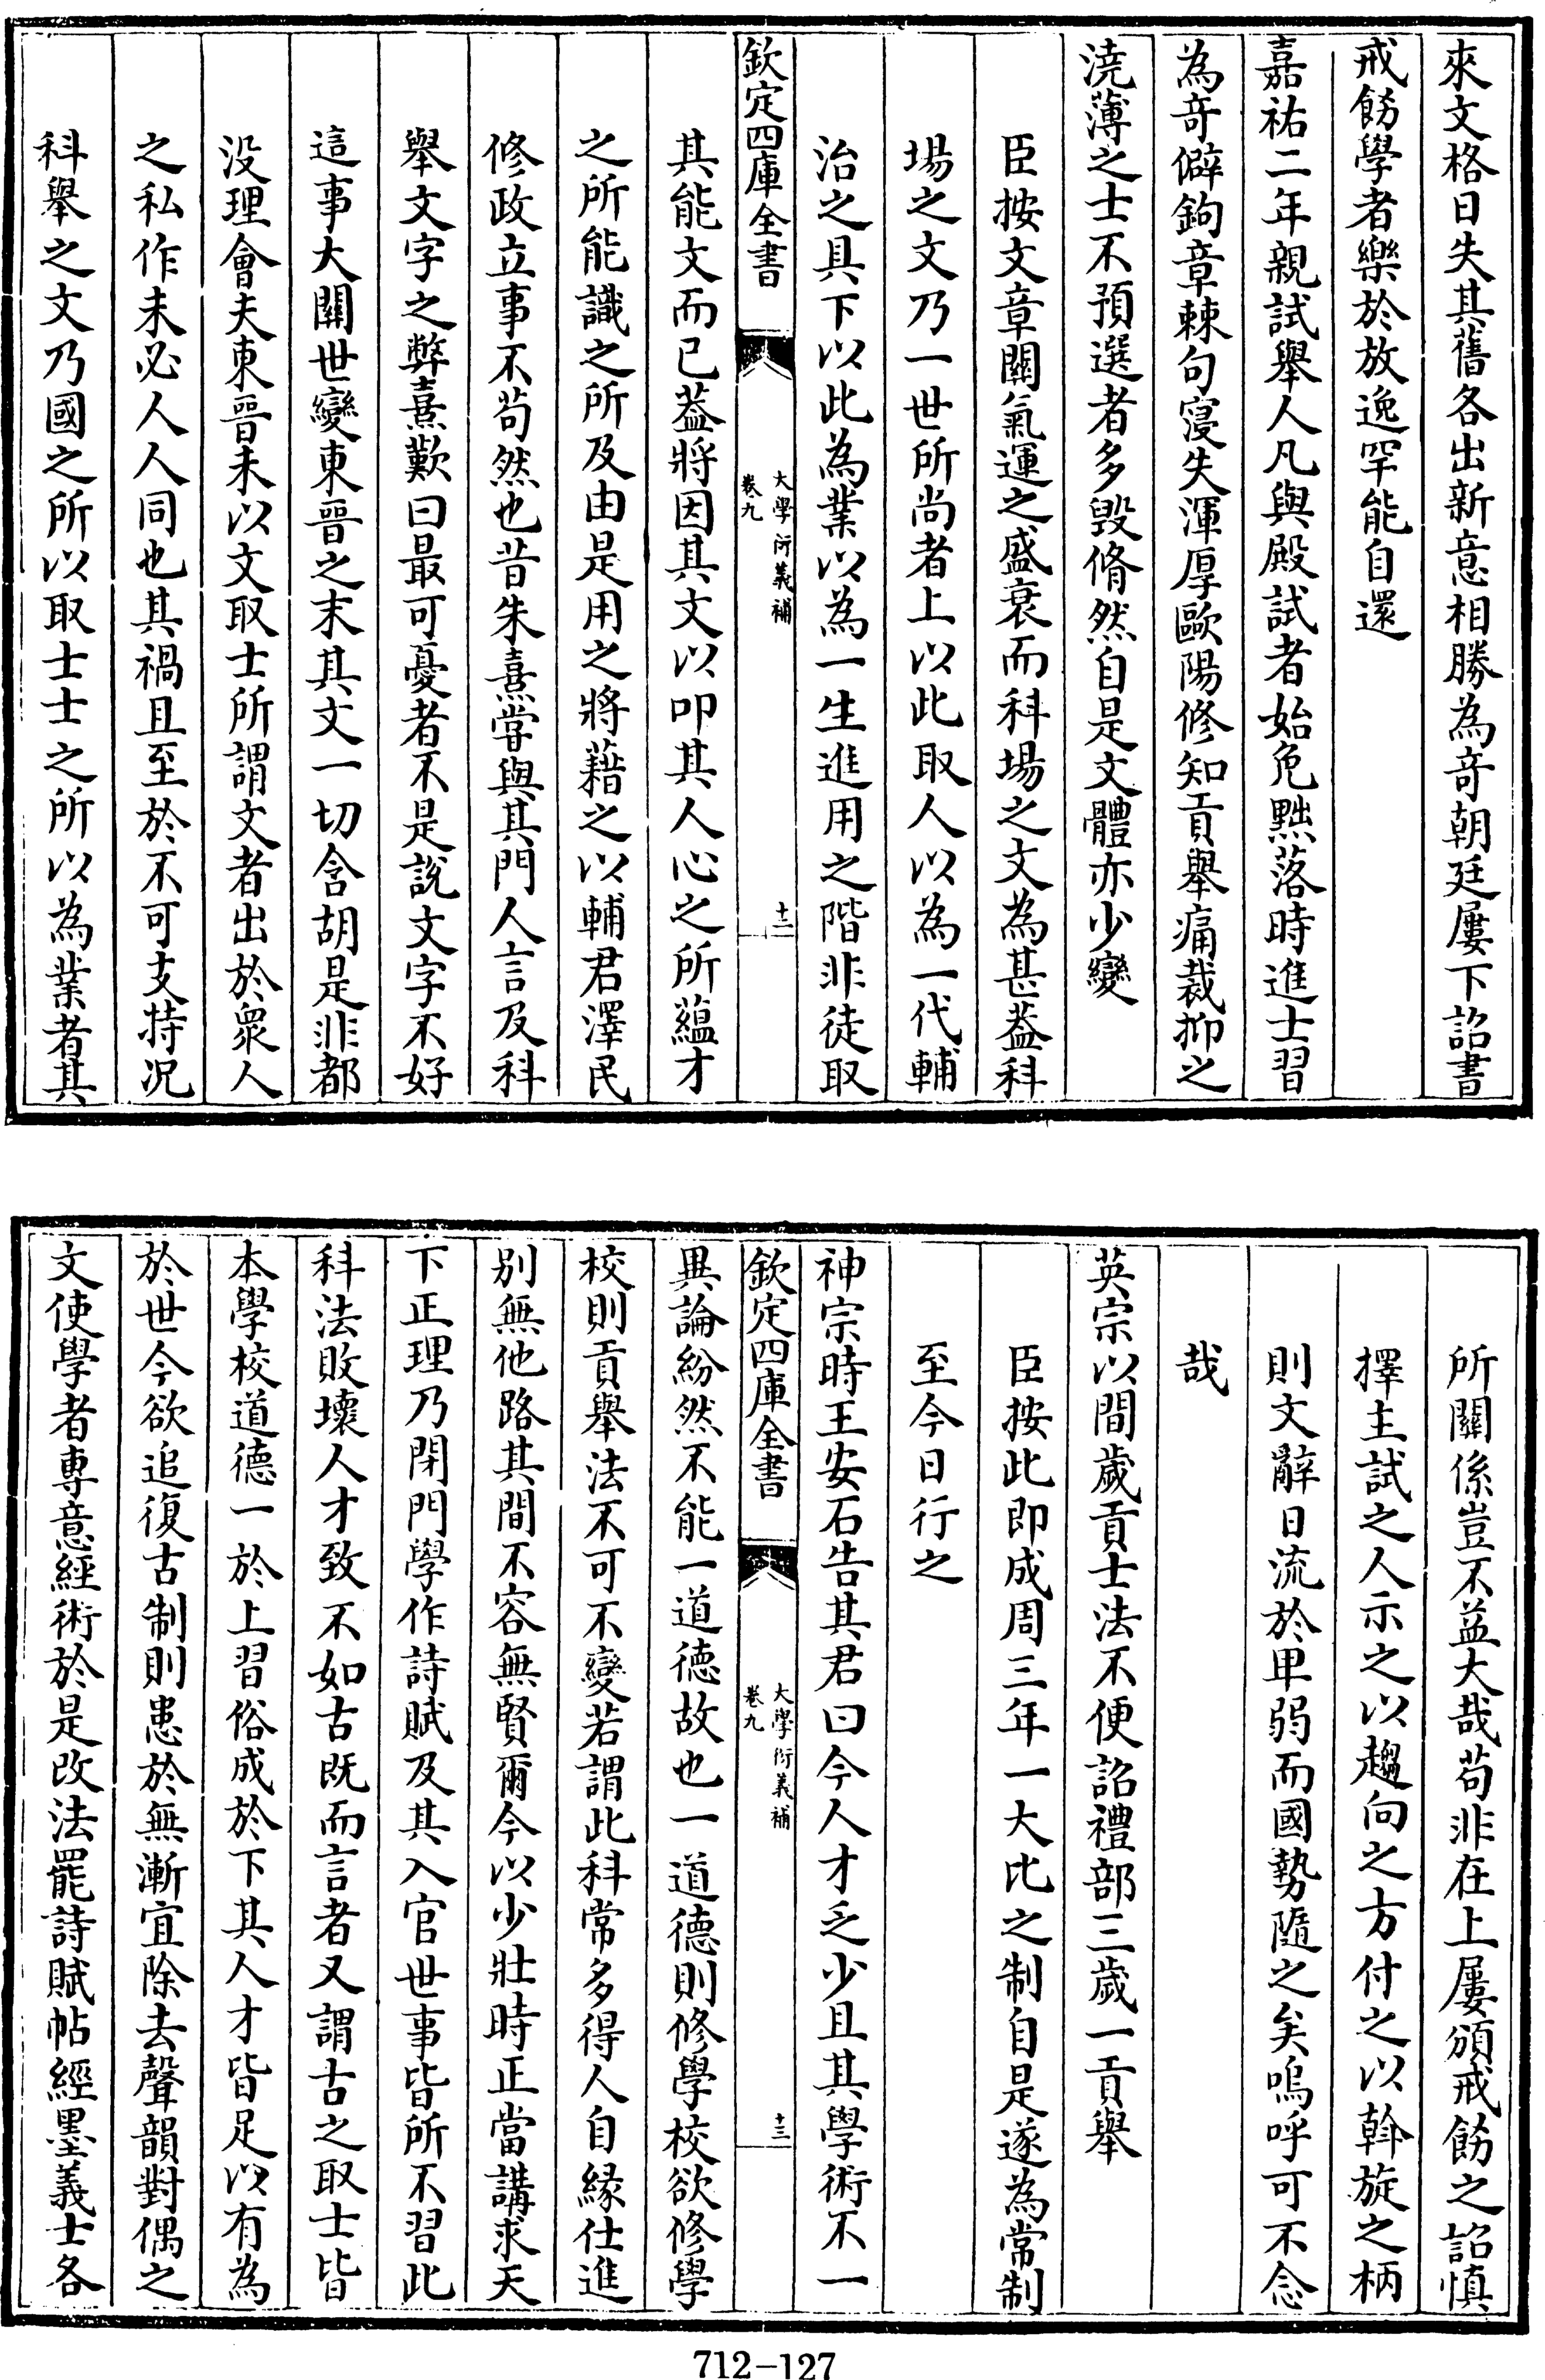 來文格日失其舊各出新意相勝為竒朝廷屢下詔書
戒飭學者樂於放逸罕能自還
嘉祐二年親試舉人凡與殿試者始免黜落時進士習
為竒僻鉤章棘句寖失渾厚歐陽修知貢舉痛裁抑之
澆薄之士不預選者多毀脩然自是文體亦少變
臣按文章關氣運之盛衰而科場之文為甚葢科
場之文乃一世所尚者上以此取人以為一代輔
治之具下以此為業以為一生進用之階非徒取
欽定四庫全書
大學衍義補
卷九
十二
其能文而已葢將因其文以叩其人心之所蘊才
之所能識之所及由是用之將藉之以輔君澤民
修政立事不苟然也昔朱熹嘗與其門人言及科
舉文字之弊熹歎曰最可憂者不是說文字不好
這事大關世變東晉之末其文一切含胡是非都
没理會夫東晉未以文取士所謂文者出於衆人
之私作未必人人同也其禍且至於不可支持况
科舉之文乃國之所以取士士之所以為業者其
所關係豈不益大哉苟非在上屢頒戒飭之詔慎
擇主試之人示之以趨向之方付之以斡旋之柄
則文辭日流於卑弱而國勢隨之矣嗚呼可不念
哉
英宗以間歲貢士法不便詔禮部三歲一貢舉
臣按此即成周三年一大比之制自是遂為常制
至今日行之
神宗時王安石告其君曰今人才乏少且其學術不一
欽定四庫全書
大學衍義補
卷九
十三
異論紛然不能一道德故也一道德則修學校欲修學
校則貢舉法不可不變若謂此科常多得人自縁仕進
别無他路其間不容無賢爾今以少壯時正當講求天
下正理乃閉門學作詩賦及其入官世事皆所不習此
科法敗壞人才致不如古既而言者又謂古之取士皆
本學校道德一於上習俗成於下其人才皆足以有為
於世今欲追復古制則患於無漸宜除去聲韻對偶之
文使學者專意經術於是改法罷詩賦帖經墨義士各
712-127